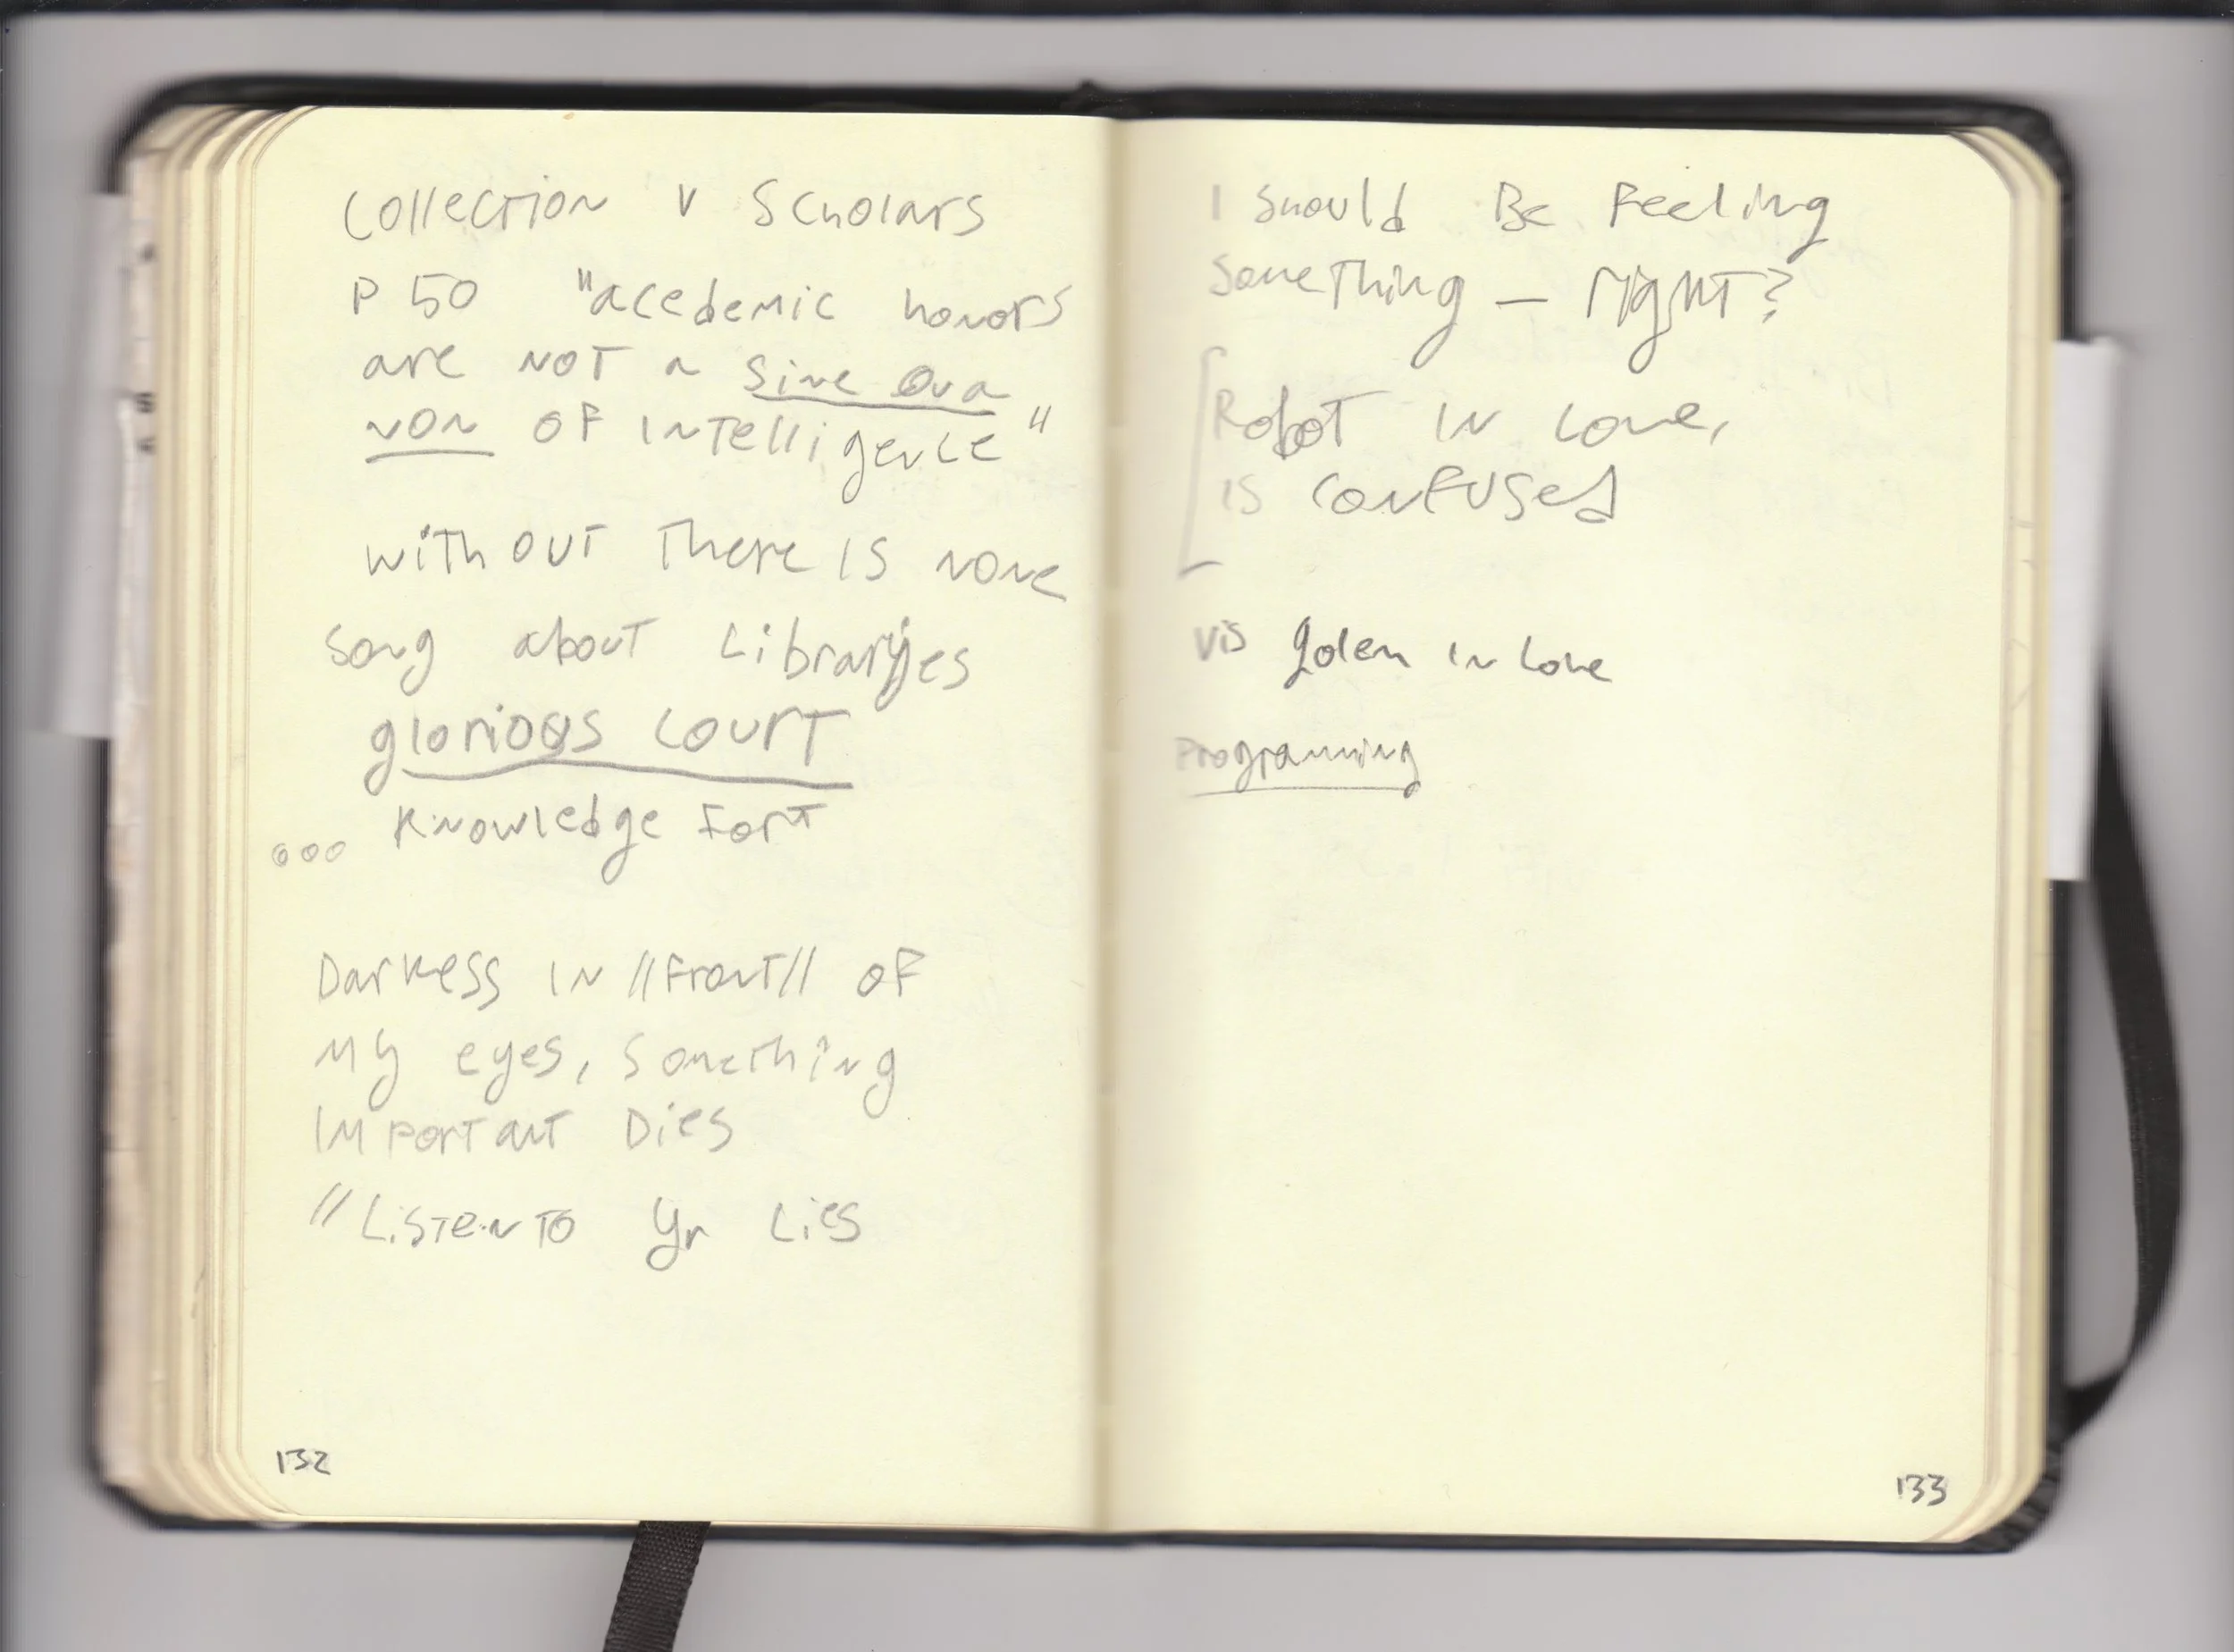 Collection v Scholars
P 50 "acedemic honors
are not a sine qua
non of intelligence"
without there is none
song about Libraryies
glorious court
... Knowledge Fort
Darkess in //front// of
my eyes, something
important Dies
"Listen to yr Lies
132
I should Be Feeling
something — right?
[Robot in love,
is confused
vis golem in love
Programming
133